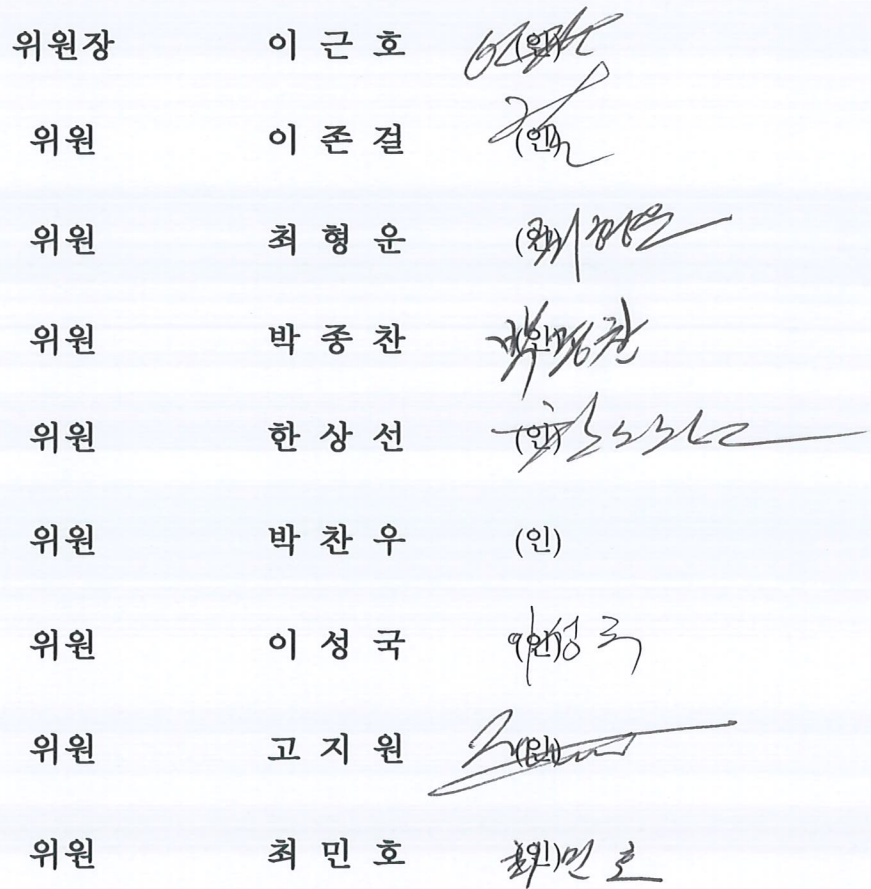 위원장 이 근 호 (인)
위원 이 존 걸 (인)
위원 최 형 운 (인)
위원 박 종 찬 (인)
위원 한 상 선 (인)
위원 박 찬 우 (인)
위원 이 성 국 (인) 이성국
위원 고 지 원 (인)
위원 최 민 호 (인) 최민호